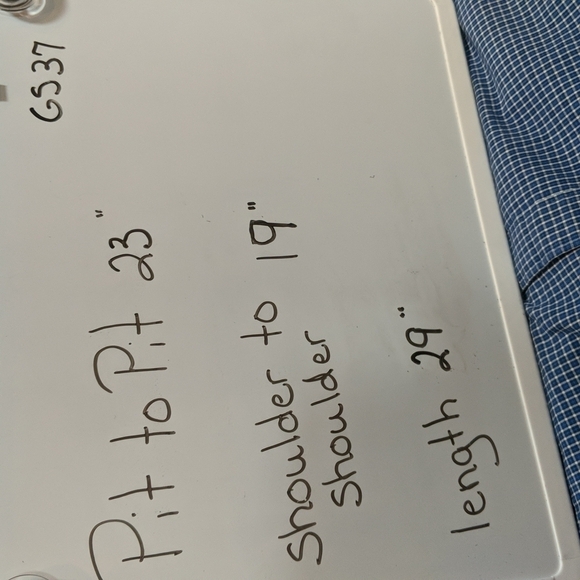 GS37
Pit to Pit 23"
Shoulder to 19"
Shoulder
length 29"